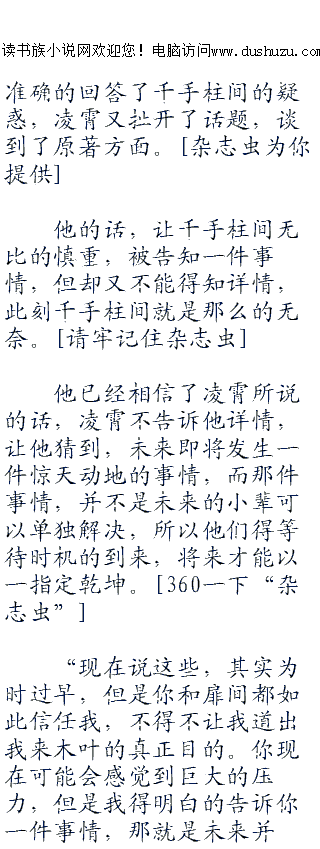 读书族小说网欢迎您！电脑访问www.dushuzu.com
准确的回答了千手柱间的疑
惑，凌霄又扯开了话题，谈
到了原著方面。[杂志虫为你
提供]
他的话，让千手柱间无
比的慎重，被告知一件事
情，但却又不能得知详情，
此刻千手柱间就是那么的无
奈。[请牢记住杂志虫]
他已经相信了凌霄所说
的话，凌霄不告诉他详情，
让他猜到，未来即将发生一
件惊天动地的事情，而那件
事情，并不是未来的小辈可
以单独解决，所以他们得等
待时机的到来，将来才能以
一指定乾坤。[360一下“杂
志虫”]
“现在说这些，其实为
时过早，但是你和扉间都如
此信任我，不得不让我道出
我来木叶的真正目的。你现
在可能会感觉到巨大的压
力，但是我得明白的告诉你
一件事情，那就是未来并